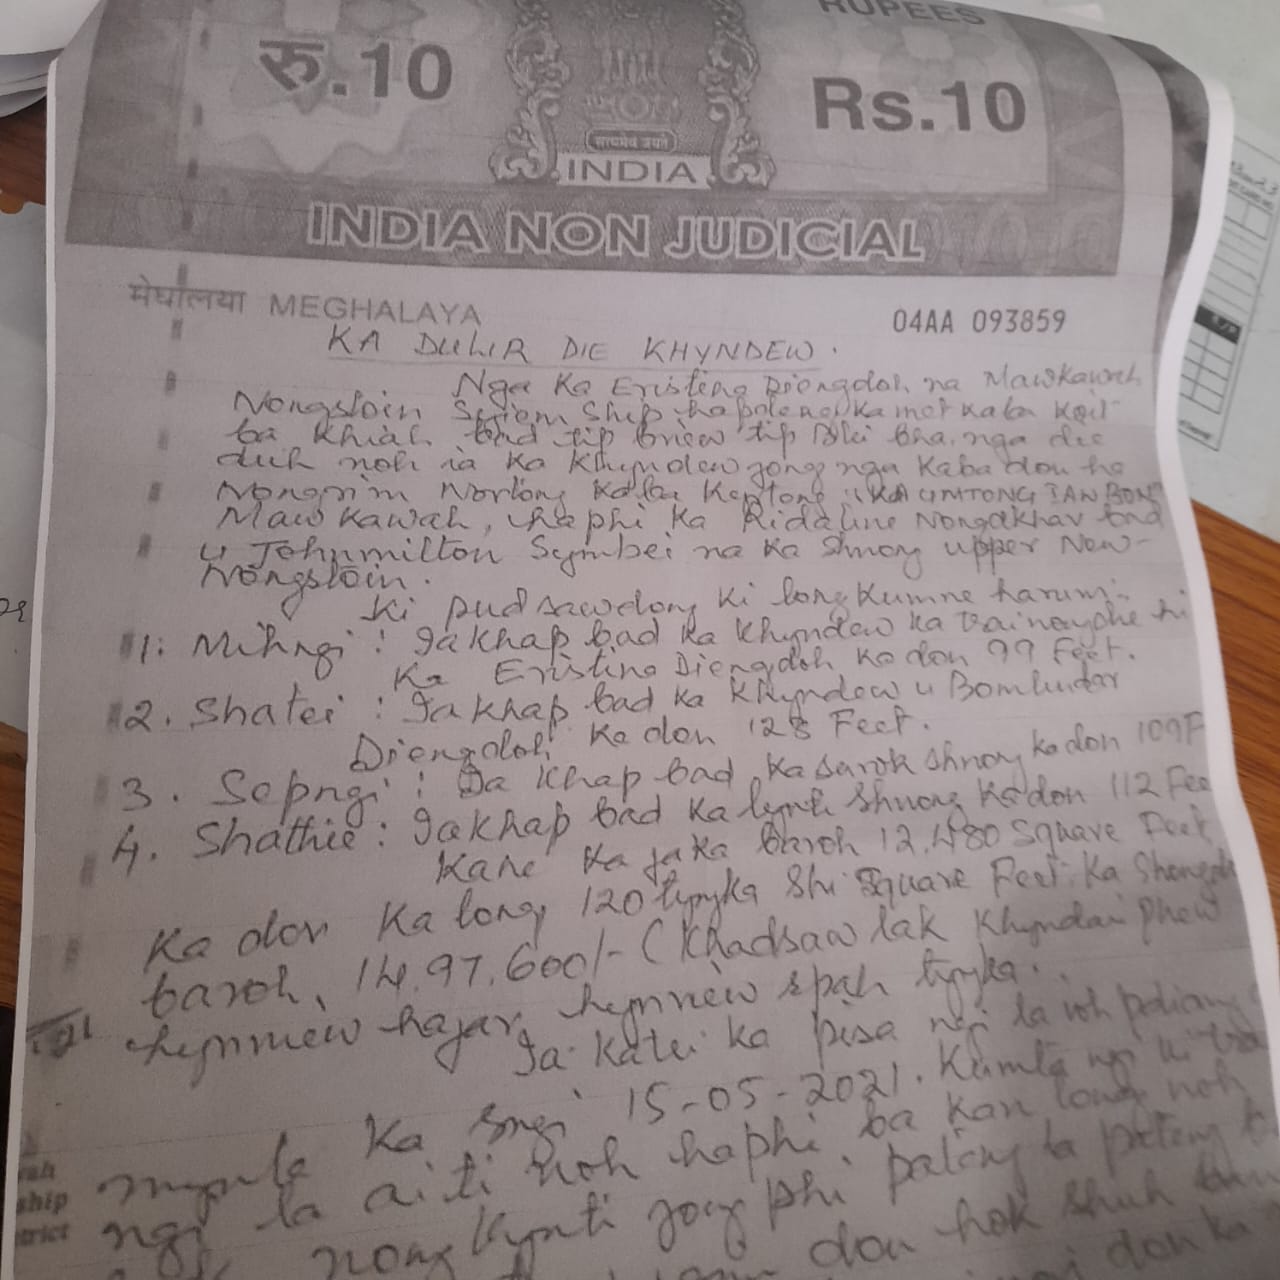 RUPEES
रु.10
Rs.10
सत्यमेव जयते
INDIA
INDIA NON JUDICIAL
मेघालया MEGHALAYA
04AA 093859
KA DULIR DIE KHYNDEW.
Nga Ka Eristina Diengdoh, na Mawkawah
Nongstoin Syiem Ship hapdeng ka met kaba koit
ba khiah bad tip briew tip Blei bha, nga die
duh noh ia ka Khyndew jong nga kaba don ha
Nongrim Nortong kaba kyrtong "KA UMTONG IAW BON"
Mawkawah, haphi Ka Ridaline Nongkhlaw bad
u Johnmilton Symbei na ka Shnong upper New-
Nongstoin.
Ki pud sawdong ki long kumne harum:
1: Mihngi: Ia khap bad ka khyndew ka hi
Ka Eristina Diengdoh ka don 99 Feet.
2. Shatei: Ia khap bad ka Khyndew u Bomlundar
Diengdoh ka don 128 Feet.
3. Sepngi: Ia khap bad ka surok shnong ka don 109F
4. Shathie: Ia khap bad ka lynti Shnong ka don 112 Fee
Kane ka jaka baroh 12,480 Square Feet
Ka dor ka long 120 tyngka Shi Square Feet. Ka
baroh, 14,97,600/- (Khadsaw lak Khyndai phew
hynniew hajar, hynriew spah tyngka.
Ia katei ka pisa ngi la ioh pdiang
mynta ka sngi 15-05-2021. Kumta ngi ki tra
ngi la aiti noh haphi, ba kan long noh
nongkynti jong phi pateng la pateng b
don hok shuh
don ka